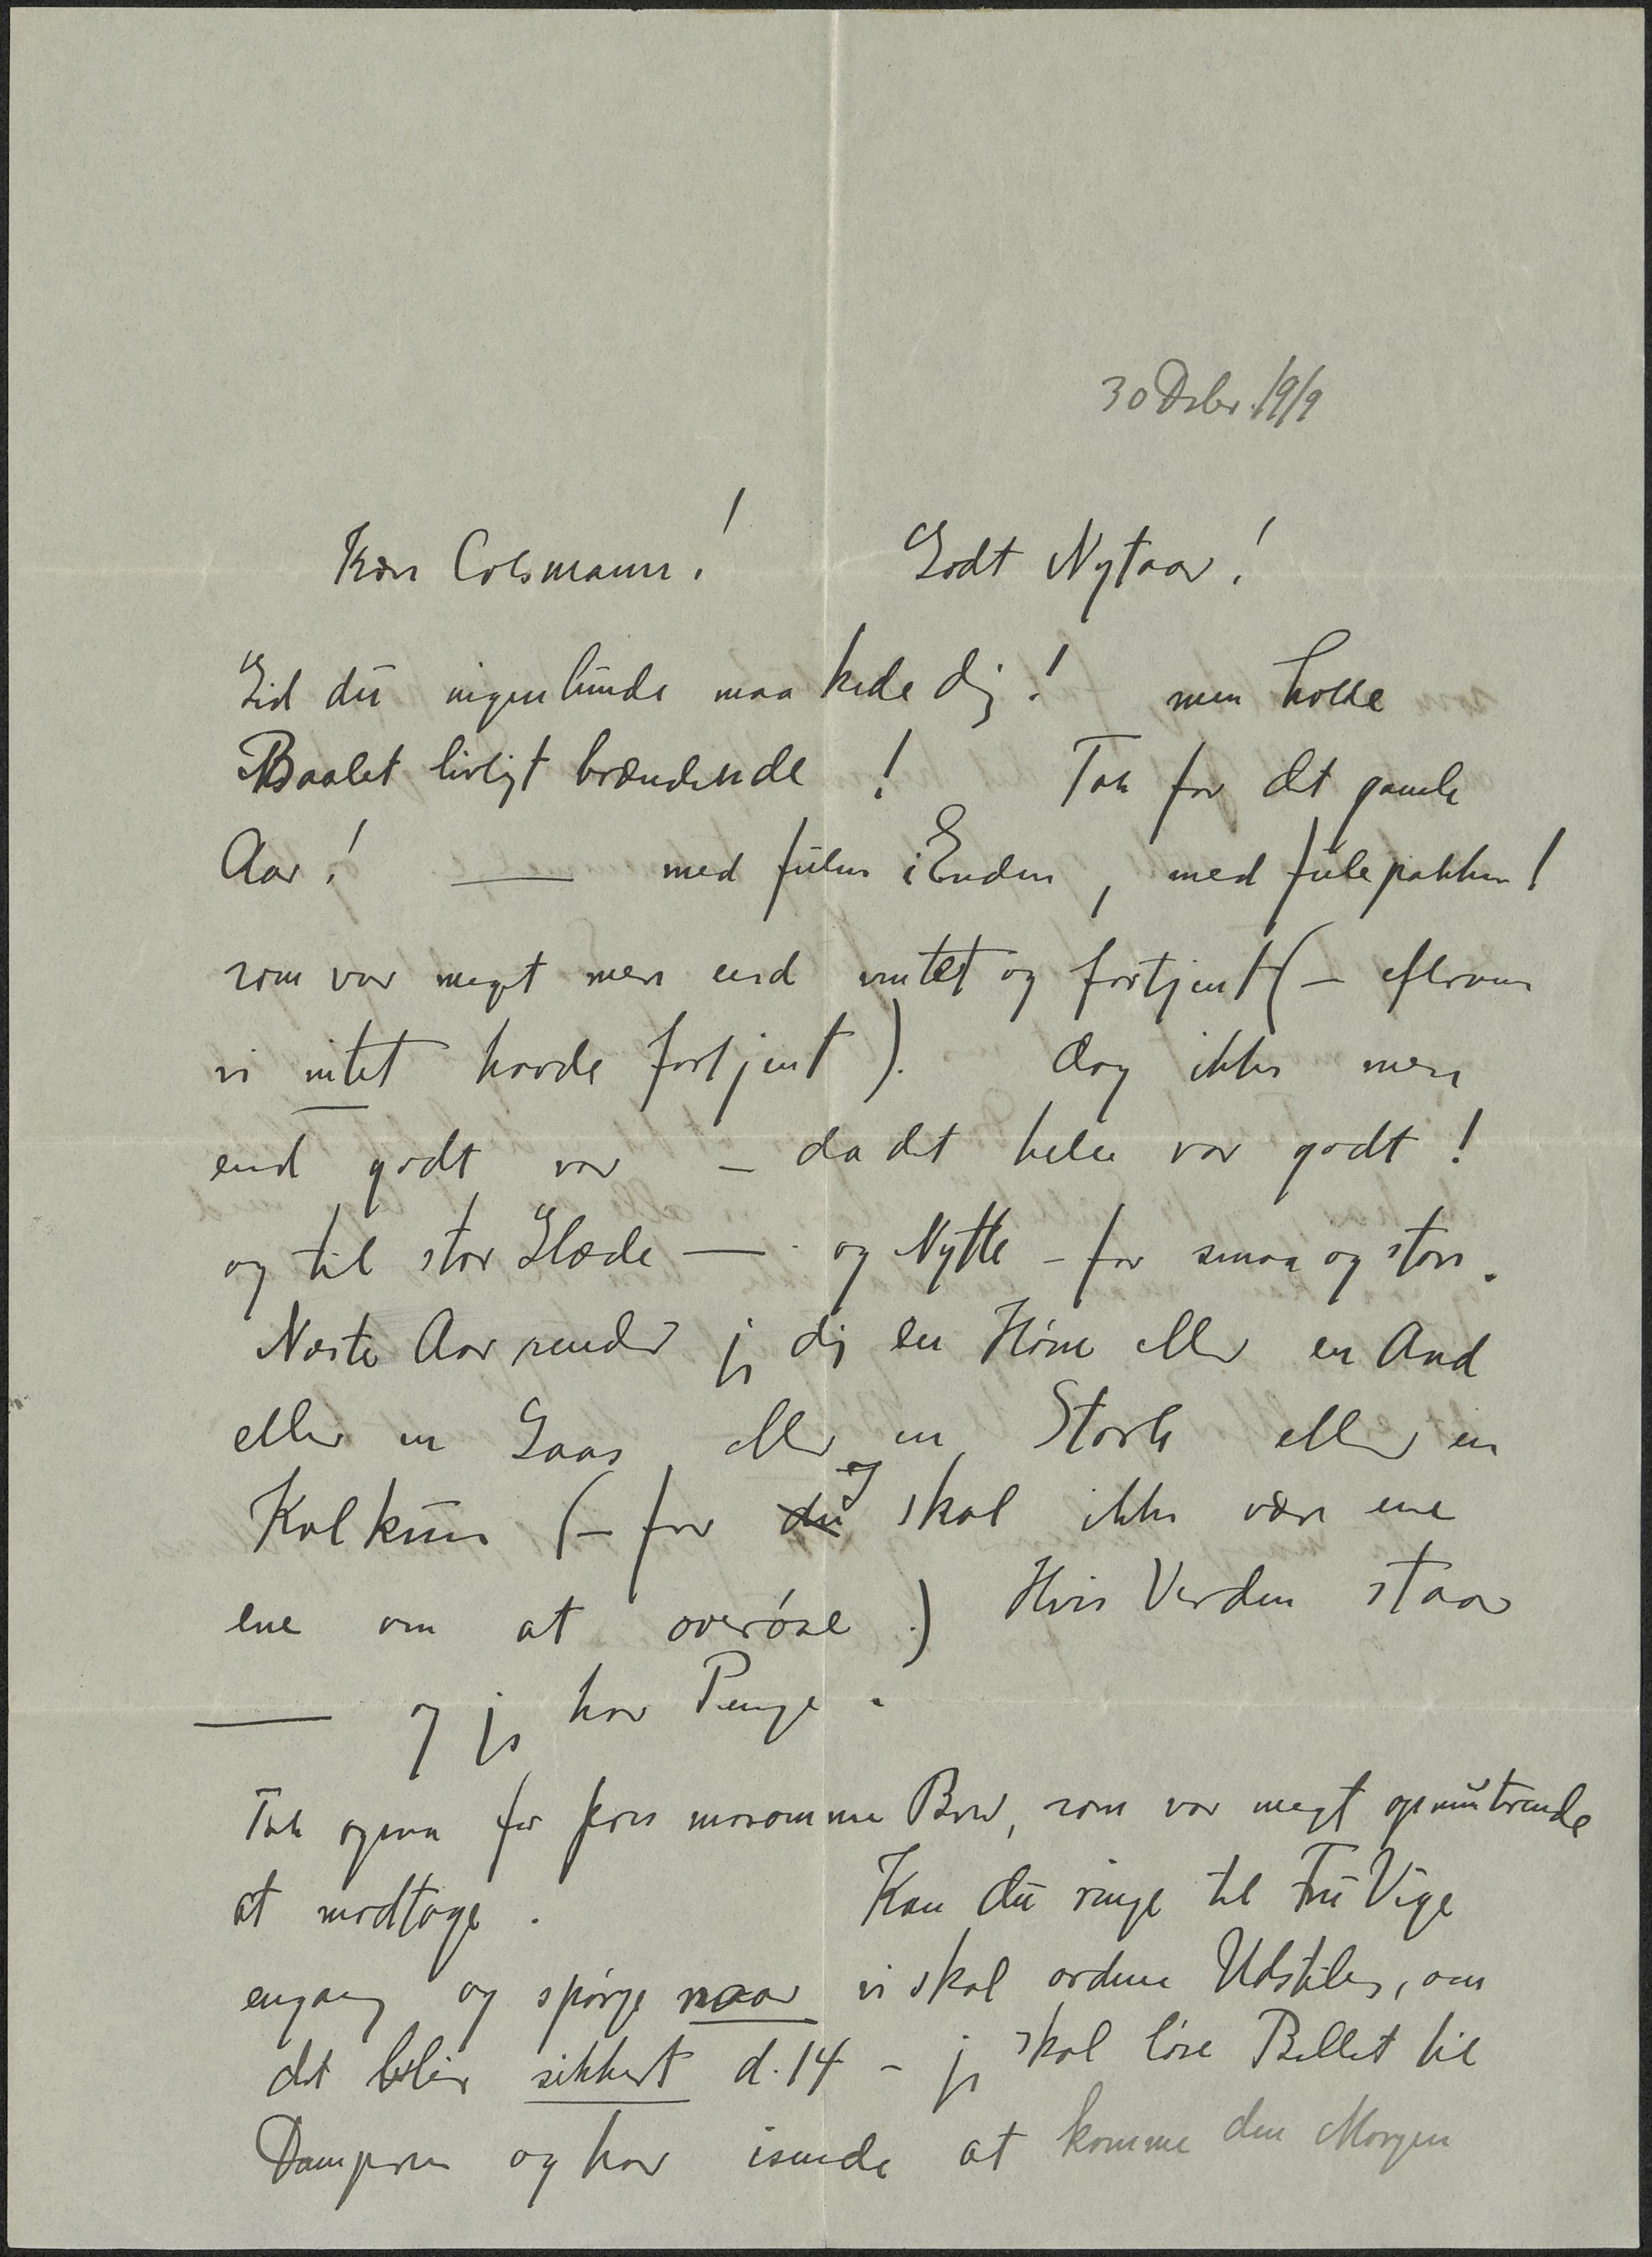 30 Dcbr. 1919
Kære Colsmann! Godt Nytaar!
Gid du ingenlunde maa kede dig! men holde
Baalet livligt brændende! Tak for det gamle
Aar! — med Julen i Enden, med Julepakken!
som var meget mere end ventet og fortjent (– eftersom
vi intet havde fortjent). dog ikke mere
end godt var – da det hele var godt!
og til stor Glæde — og Nytte – for smaa og store.
Næste Aar sender jeg dig en Høne eller en And
eller en Gaas eller en Stork eller en
Kalkun (– for du skal ikke være ene
ene om at overøse.) Hvis Verden staar
— og jeg har Penge.
Tak ogsaa for jeres morsomme Brev, som var meget opmuntrende
at modtage. Kan du ringe til Fru Vige
engang og spørge naar vi skal ordne Udstillg, om
det bliver sikkert d. 14 – jeg skal løse Billet til
Damperen og har isinde at komme den Morgen